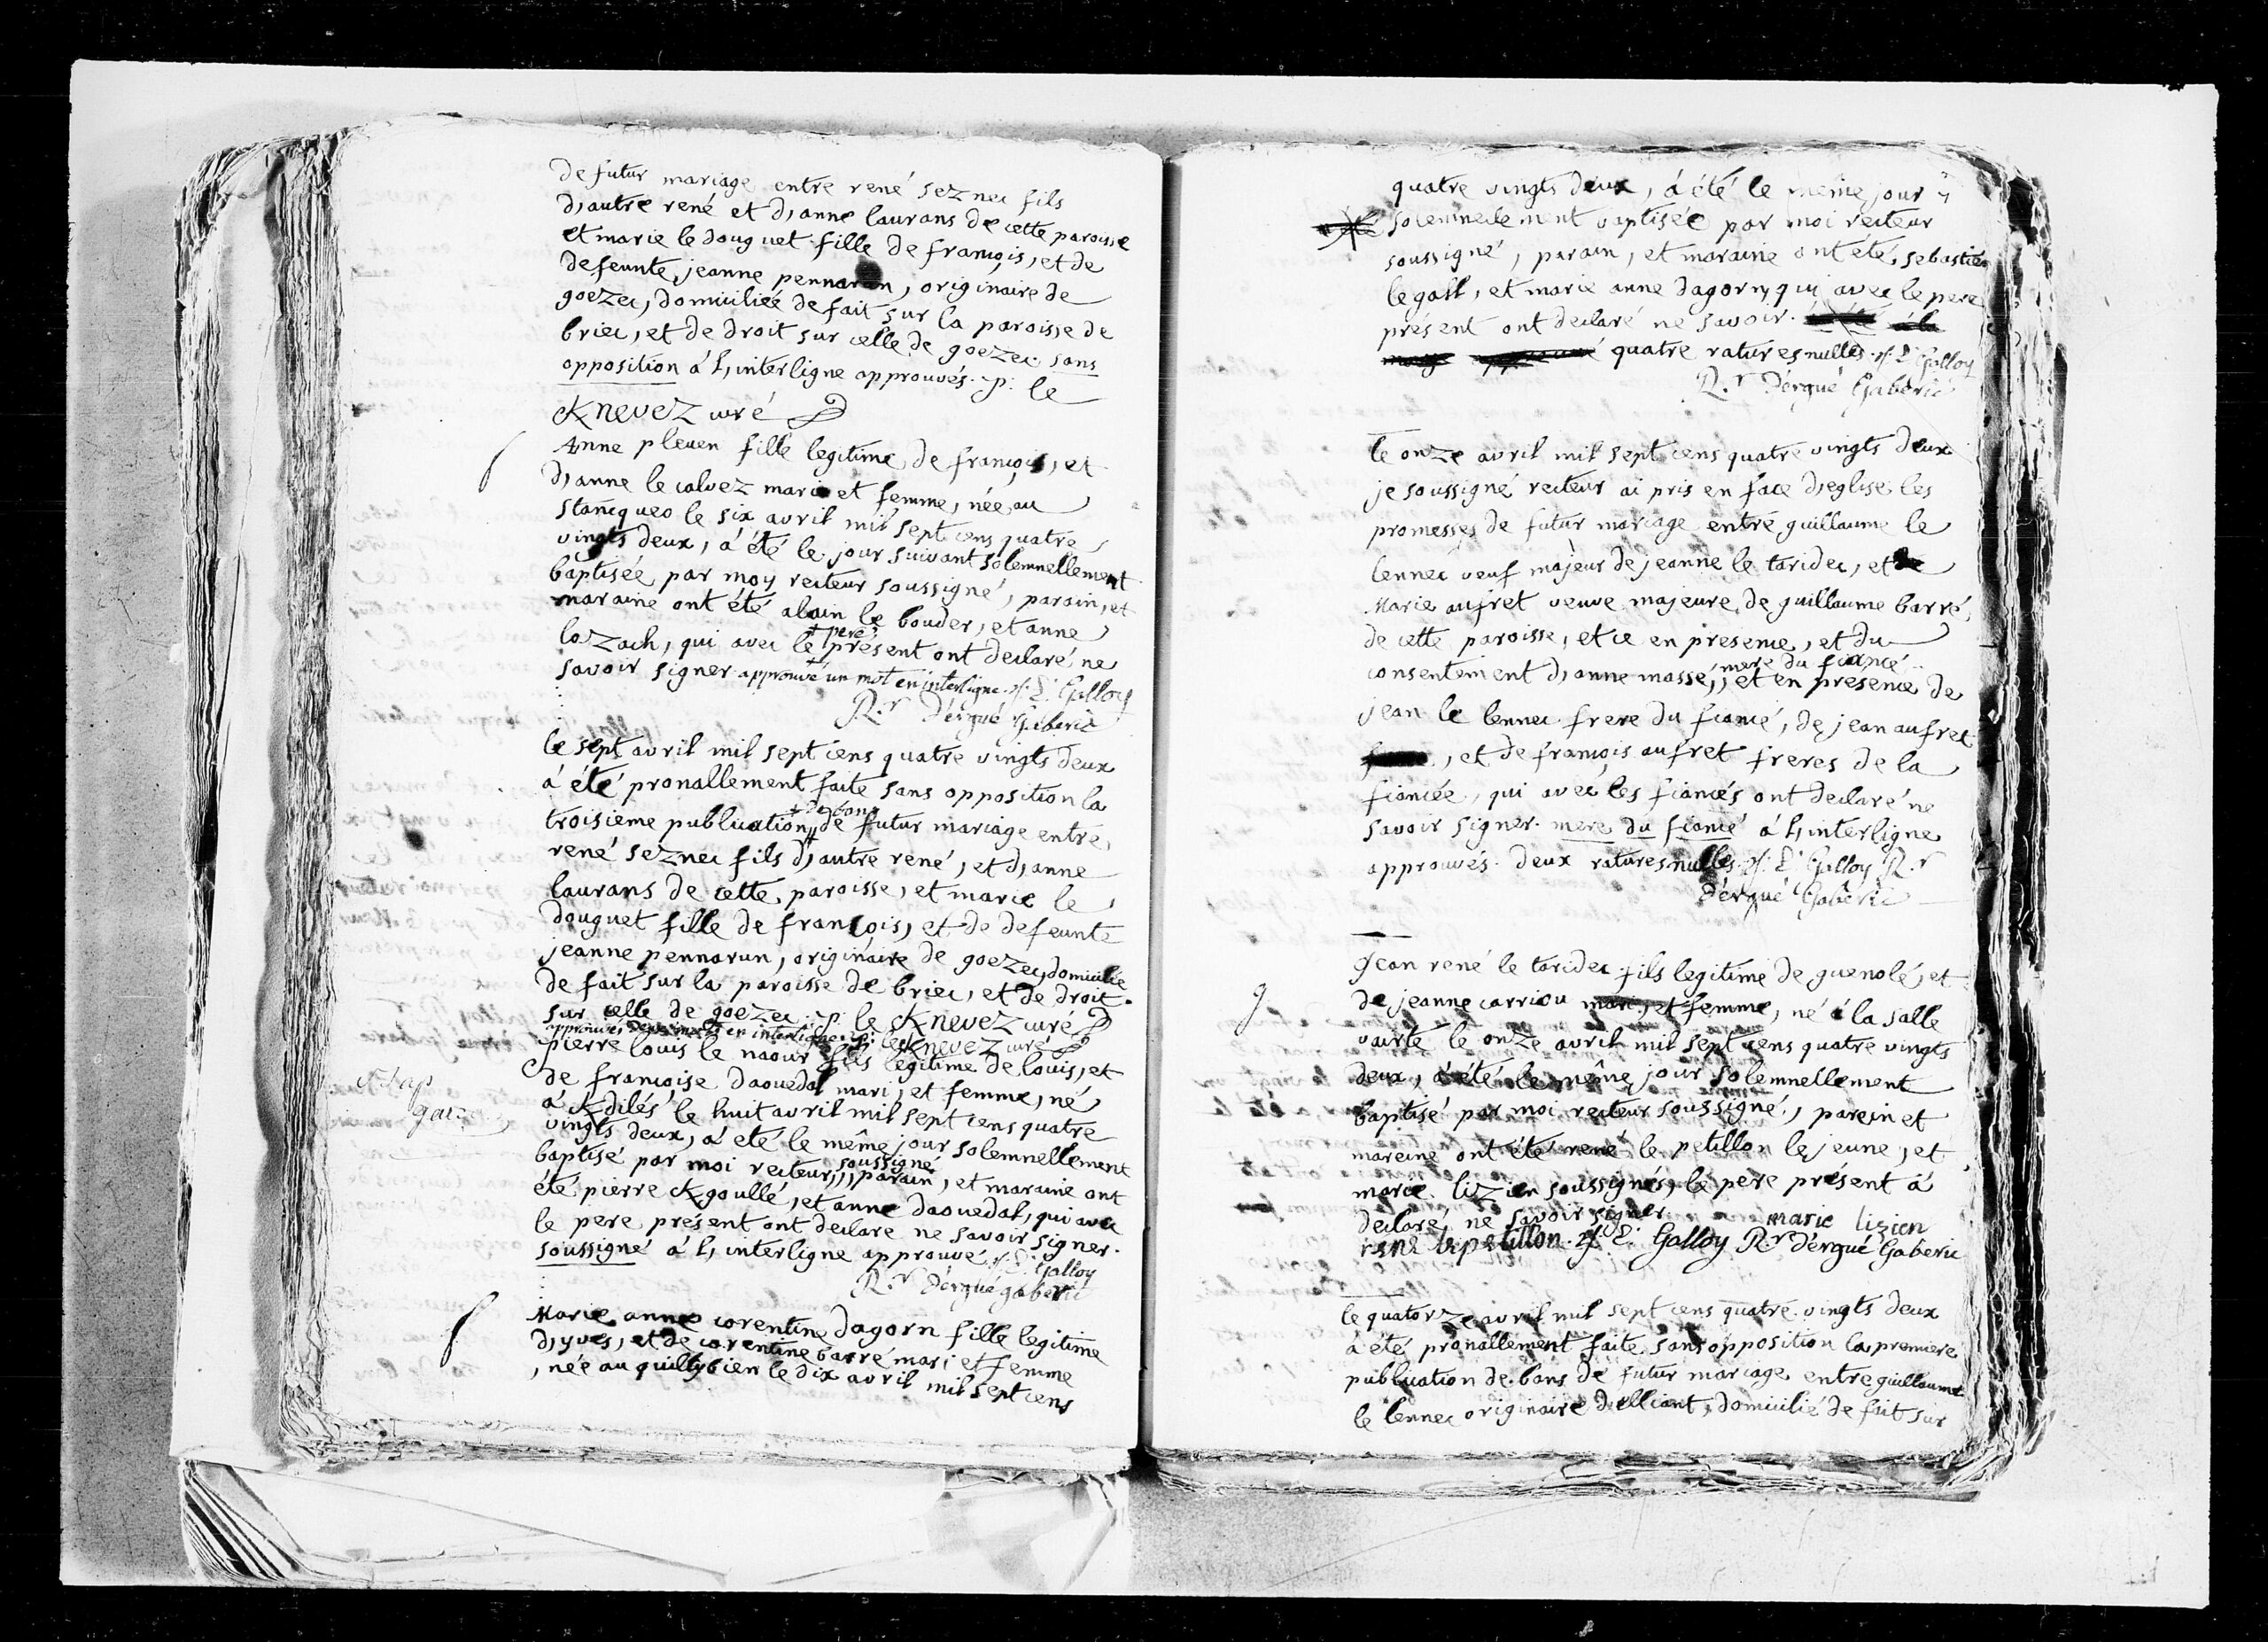 de futur mariage entre rené seznec fils
d,autre rené et d,anne laurans de cette paroisse
et marie le douguet fille de françois, et de
defeunte jeanne pennarun, originaire de
goezec, domiciliée de fait sur la paroisse de
briec, et de droit sur celle de goezec sans
opposition á l,interligne approuvés. p: le
Knevez curé
Anne pleuen fille legitime de françois, et
d,anne le calvez mari et femme, née au
stancqueo le six avril mil sept cens quatre
vingts deux, á été le jour suivant solemnellement
baptisée par moy recteur soussigné, parain, et
maraine ont été alain le bouder, et anne
lozach, qui avec le père présent ont declaré ne
savoir signer. approuvé un mot en interligne. Galloy
R.r D'érgué Gaberic
le sept avril mil sept cens quatre vingts deux
á été pronallement faite sans opposition la
troisieme publication de bans de futur mariage entre
rené seznec fils d,autre rené, et d,anne
laurans de cette paroisse, et marie le
douguet fille de françois, et de defeunte
jeanne pennarun, originaire de goezec, domiciliée
de fait sur la paroisse de briec, et de droit
sur celle de goezec. p: le Knevez curé
approuvés deux mots en interligne. p: le Knevez curé
pierre louis le naour fils legitime de louis, et
de françoise daouedal mari, et femme, né
á Kdilés le huit avril mil sept cens quatre
vingts deux, á été le même jour solemnellement
baptisé par moi recteur, soussigné parain, et maraine ont
été pierre Kgoullé, et anne daouedal, qui avec
le pere présent ont declare ne savoir signer.
soussigné á l, interligne approuvé. Galloy
R.r D'érgué gaberic
Marie anne corentine dagorn fille legitime
d,yves, et de corentine barré mari et femme
, née au quillybien le dix avril mil sept cens
quatre vingts deux, á été le même jour
solemnellement baptisée par moi recteur
soussigné, parain, et maraine ont été, sebastien
le gall, et marie anne dagorn, qui avec le pere
présent ont declaré ne savoir.
quatre ratures nulles. Galloy
R.r D'érgué Gaberic
le onze avril mil sept cens quatre vingts deux
je soussigné recteur ai pris en face d,eglise les
promesses de futur mariage entre guillaume le
lennec veuf majeur de jeanne le taridec, et de
Marie aufret veuve majeure de guillaume barré,
de cette paroisse, et ce en presence, et du
consentement d,anne massé, mere du fiancé et en presence de
jean le lennec frere du fiancé, de jean aufret
, et de françois aufret freres de la
fiancée, qui avec les fiancés ont declaré ne
savoir signer. mere du fiancé á l,interligne
approuvés. deux ratures nulles. Galloy R.r
d'érgué Gabéric
Jean rené le taridec fils legitime de guenolé, et
de jeanne carriou mari, et femme, né á la salle
vairte le onze avril mil sept cens quatre vingts
deux, á été le même jour solemnellement
baptisé par moi recteur soussigné, parein et
mareine ont été rené le petillon le jeune, et
marie lizien soussignés, le pere présent á
declaré ne savoir signer. marie lizien
rené le petillon. Galloy R.r d'érgué Gaberic
le quatorze avril mil sept cens quatre vingts deux
á été pronallement faite sans opposition la premiere
publication de bans de futur mariage entre guillaume
le lennec originaire d,elliant, domicilié de fait sur